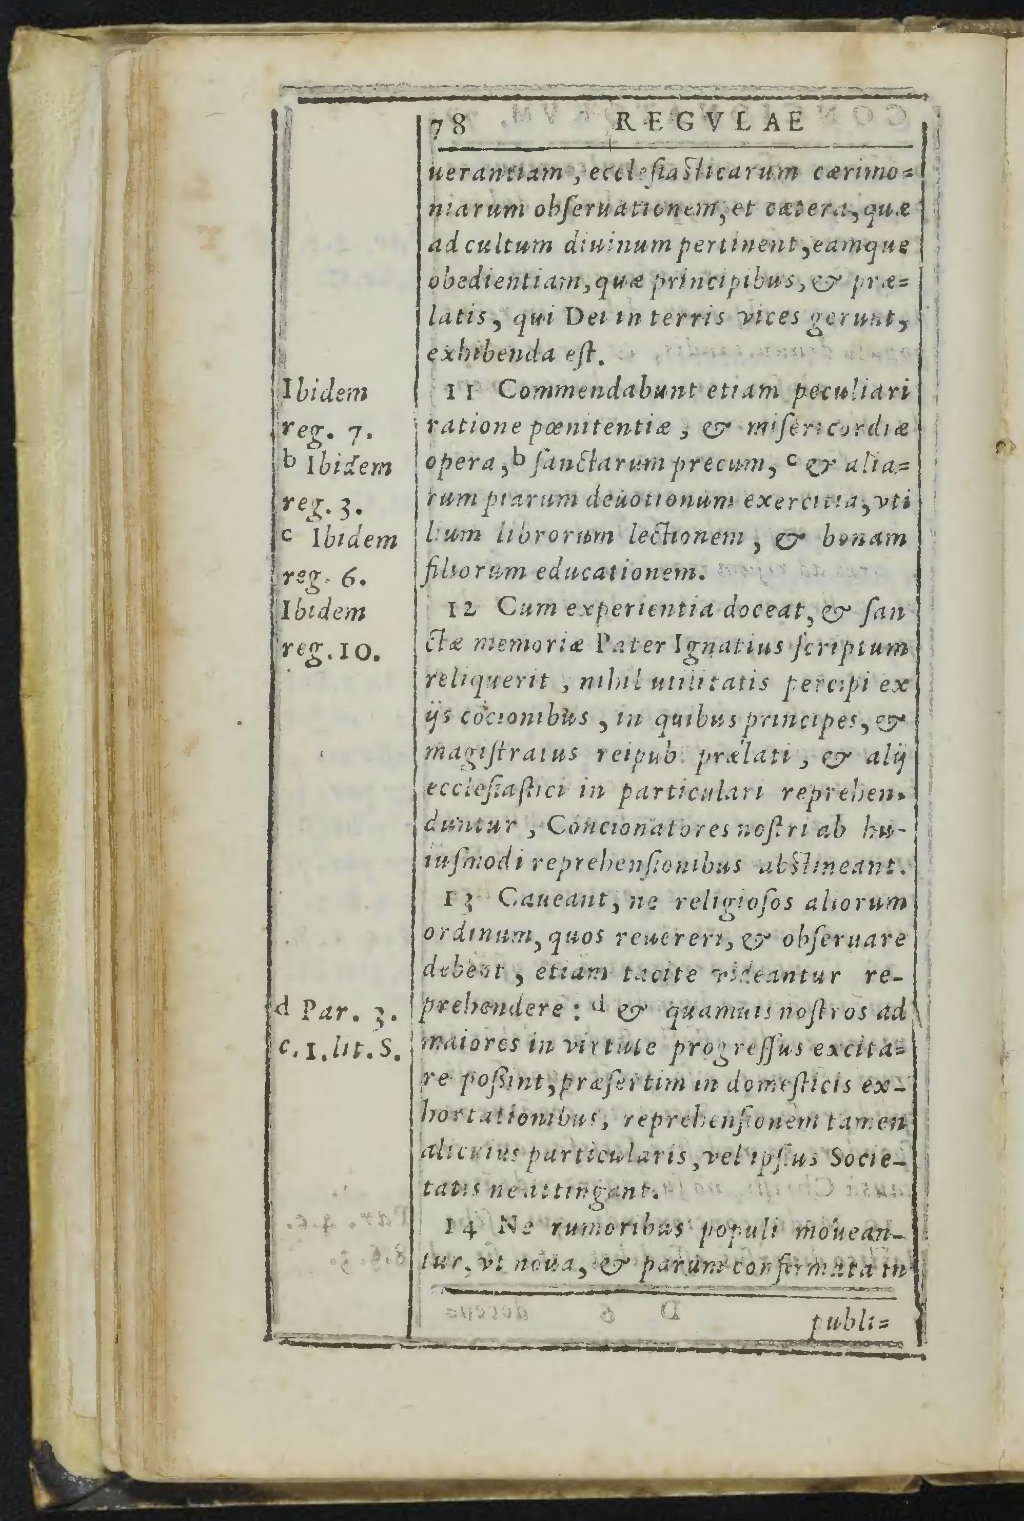 78 REGVLAE
uerantiam, ecclesiasticarum cærimo=
niarum obseruationem, et cætera, quæ
ad cultum diuinum pertinent, eamque
obedientiam, quæ principibus, & præ=
latis, qui Dei in terris vices gerunt,
exhibenda est.
Ibidem
reg. 7.
b Ibidem
reg. 3.
c Ibidem
reg. 6.
11 Commendabunt etiam peculiari
ratione pœnitentiæ, & misericordiæ
opera, b sanctarum precum, c & alia=
rum piarum deuotionum exercitia, vti
lium librorum lectionem, & bonam
filiorum educationem.
Ibidem
reg. 10.
12 Cum experientia doceat, & san
ctæ memoriæ Pater Ignatius scriptum
reliquerit, nihil utilitatis percipi ex
ijs cōcionibus, in quibus principes, &
magistratus reipub. prælati, & alij
ecclesiastici in particulari reprehen-
duntur, Concionatores nostri ab hu-
iusmodi reprehensionibus abstineant.
13 Caueant, ne religiosos aliorum
ordinum, quos reuereri, & obseruare
debent, etiam tacite videantur re-
prehendere: d & quamuis nostros ad
maiores in virtute progressus excita=
re possint, præsertim in domesticis ex-
hortationibus, reprehensionem tamen
alicuius particularis, vel ipsius Socie-
tatis ne attingant.
d Par. 3.
c. 1. lit. S.
14 Ne rumoribus populi mouean-
tur, vt noua, & parum confirmata in
publi=